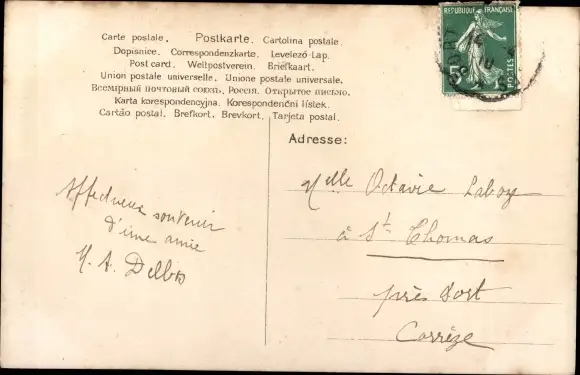 Carte postale. Postkarte. Cartolina postale.
Dopisnice. Correspondenzkarte. Levelező-Lap.
Post card. Weltpostverein. Briefkaart.
Union postale universelle. Unione postale universale.
Всемірный почтовый союзъ. Россія. Открытое письмо.
Karta korespondencyjna. Korespondenční lístek.
Cartão postal. Brefkort. Brevkort. Tarjeta postal.
REPUBLIQUE FRANÇAISE
POSTES
Adresse:
Affectueux souvenir
d'une amie
M. A. Delbos
Melle Octavie Laboye
à St Thomas
près Bort
Corrèze